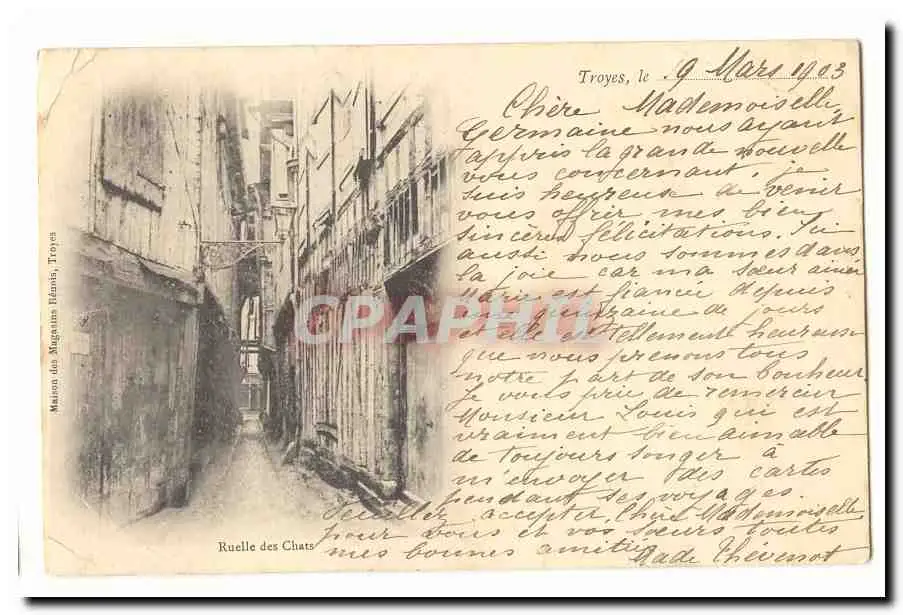 Troyes, le 9 Mars 1903
Chère Mademoiselle,
Germaine nous ayant
appris la grande nouvelle
vous concernant, je
suis heureuse de venir
vous offrir mes bien
sincères félicitations. Ici
aussi nous sommes dans
la joie car ma sœur ainée
Marie est fiancée depuis
une quinzaine de jours
et elle est tellement heureuse
que nous prenons tous
notre part de son bonheur.
Je vous prie de remercier
Monsieur Louis qui est
vraiment bien aimable
de toujours songer à
m'envoyer des cartes
pendant ses voyages.
Veuillez accepter, Chère Mademoiselle
pour vous et vos sœurs toutes
mes bonnes amitiés
Made Thévenot
Ruelle des Chats
Maison des Magasins Réunis, Troyes
CPAPHIL